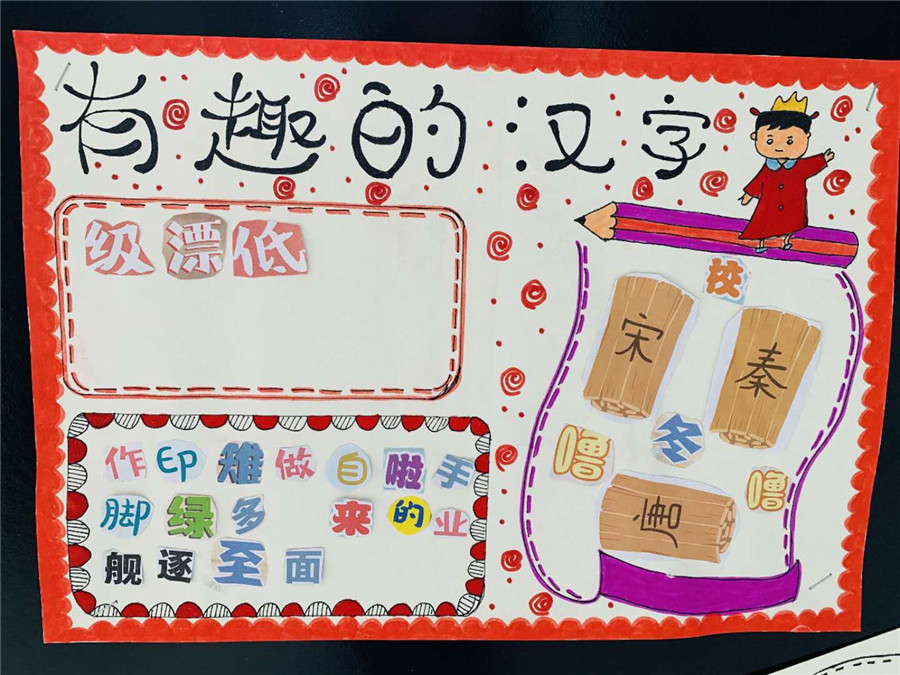 有趣的汉字
级漂低
作印难做自啦手
脚绿多来的业
舰逐至面
校
宋
秦
噜冬噜
唐